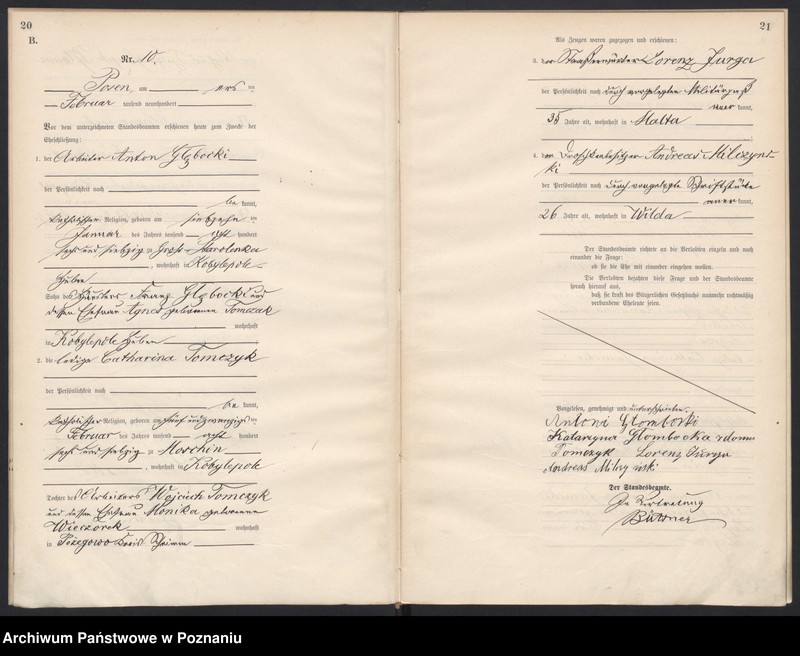 20
B.
Nr. 10.
Posen, am ersten
Februar tausend neunhundert
Vor dem unterzeichneten Standesbeamten erschienen heute zum Zweck der
Eheschließung:
1. der Arbeiter Anton Głębocki
der Persönlichkeit nach
be kannt,
katholischer Religion, geboren am siebzehnten
Januar des Jahres tausend acht hundert
sechs und siebzig zu Gross-
, wohnhaft in Kobylepole-
Huben
Sohn des Häuslers Franz Głębocki und
dessen Ehefrau Agnes geborenen Tomczak
wohnhaft
in Kobylepole Huben
2. die ledige Catharina Tomczyk
der Persönlichkeit nach
be kannt,
katholischer Religion, geboren am fünf und zwanzigsten
Februar des Jahres tausend acht hundert
sechs und siebzig zu Morchin
, wohnhaft in Kobylepole
Tochter des Arbeiters Wojciech Tomczyk
und dessen Ehefrau Monika geborenen
Wieczorek wohnhaft
in Kreis Schrimm
21
Als Zeugen waren zugezogen und erschienen:
3. der Lorenz Jurga
der Persönlichkeit nach durch vorgelegten Militärpaß
aner kannt,
35 Jahre alt, wohnhaft in Malta
4. der Droschkenbesitzer Andreas Milczyns-
ki
der Persönlichkeit nach durch vorgelegte Schriftstücke
aner kannt,
26 Jahre alt, wohnhaft in Wilda
Der Standesbeamte richtete an die Verlobten einzeln und nach
einander die Frage:
ob sie die Ehe mit einander eingehen wollen.
Die Verlobten bejahten diese Frage und der Standesbeamte
sprach hierauf aus,
daß sie kraft des Bürgerlichen Gesetzbuchs nunmehr rechtmäßig
verbundene Eheleute seien.
Vorgelesen, genehmigt und unterschrieben.
Antoni Głomboski
Katarzyna Głombocka zdomu
Tomczyk Lorenz Jurga
Andreas
Der Standesbeamte.
In Vertretung
Büttner
Archiwum Państwowe w Poznaniu